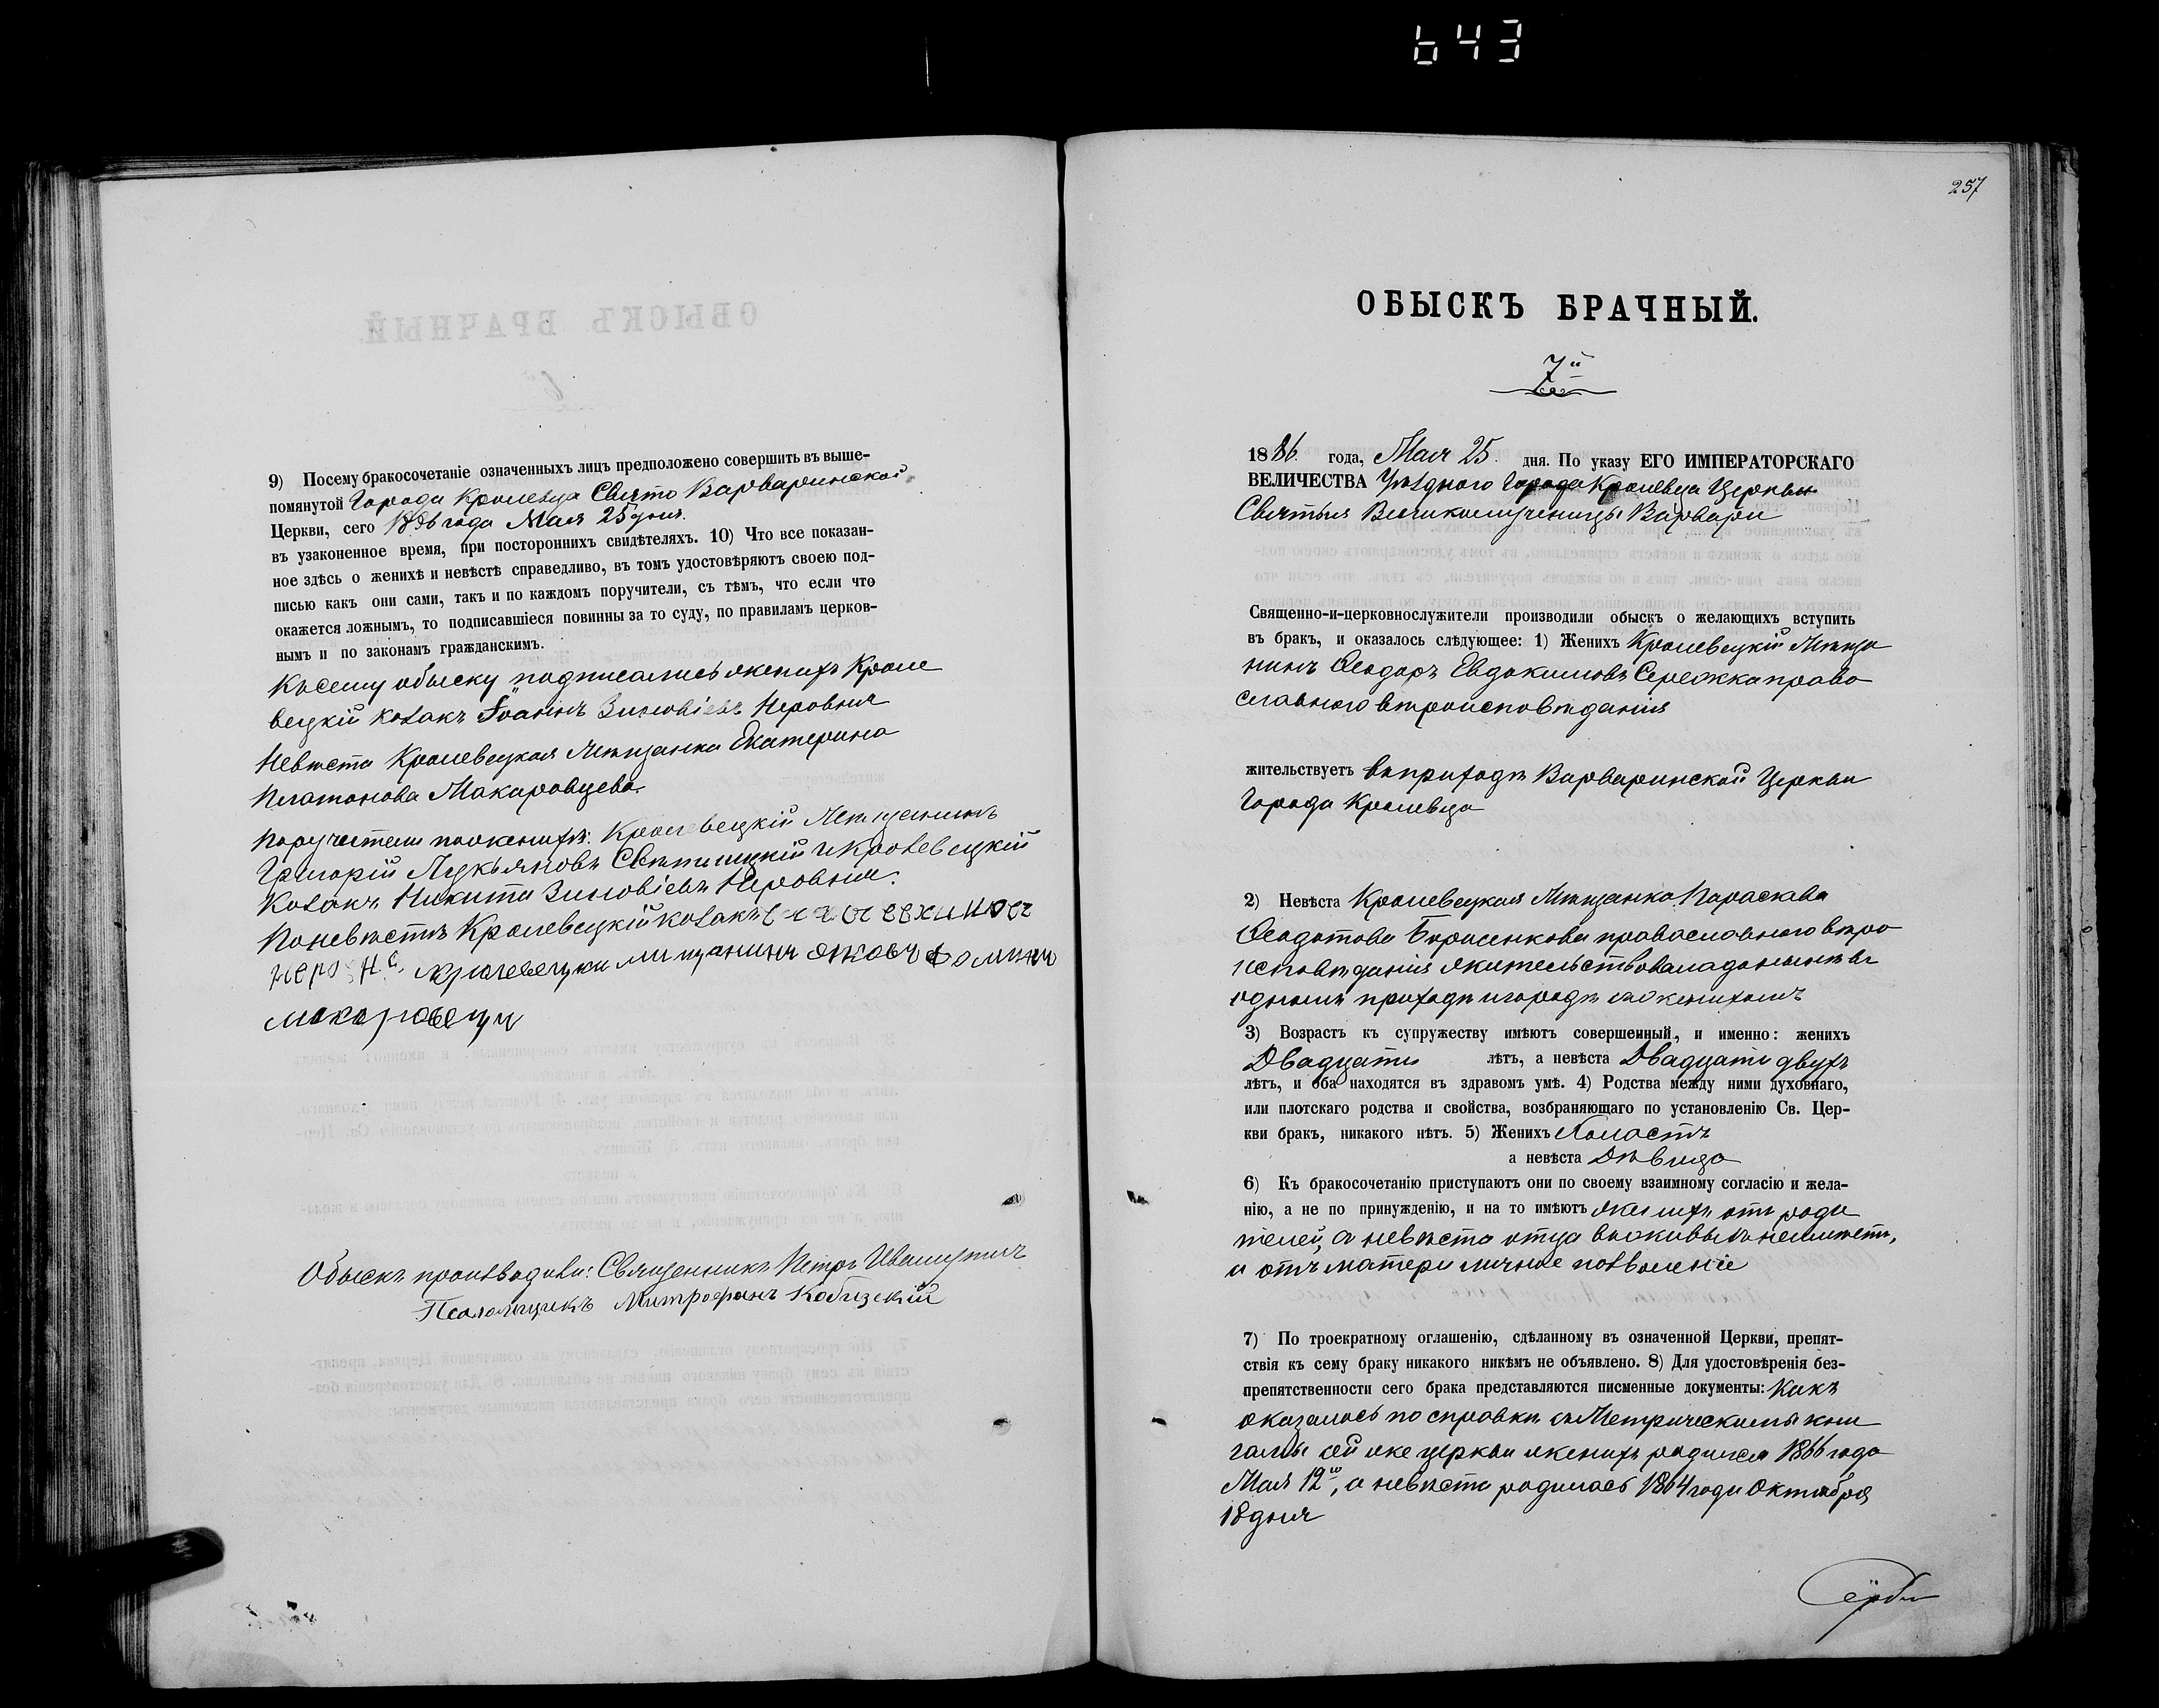 643
9) Посему бракосочетаніе означенныхъ лицъ предположено совершить въ выше-
помянутой Города Кролевца Свято Варваринской
Церкви, сего 1886 года Мая 25 дня.
въ узаконенное время, при постороннихъ свидѣтеляхъ. 10) Что все показан-
ное здѣсь о женихѣ и невѣстѣ справедливо, въ томъ удостовѣряютъ своею под-
писью какъ они сами, такъ и по каждомъ поручители, съ тѣмъ, что если что
окажется ложнымъ, то подписавшіеся повинны за то суду, по правиламъ церков-
нымъ и по законамъ гражданскимъ.
Къ сему обыску подписались женихъ Кроле
вецкій козакъ Іоаннъ Зиновіевъ Неровня
Невѣста Кролевецкая Мѣщанка Екатерина
Платонова Макаровцева.
Поручители по женихѣ: Кролевецкій Мещанинъ
Григорій Лукьяновъ Свѣтлицкій и Кролевецкій
Козакъ Никита Зиновіевъ Неровня.
По невѣстѣ Кролевецкій козакъ
мищанинъ Яковъ Фоминъ
макаровецъ
Обыскъ производили: Священникъ Петръ
Псаломщикъ Митрофанъ Кобызскій
257
ОБЫСКЪ БРАЧНЫЙ.
7й
1886. года, Мая 25. дня. По указу ЕГО ИМПЕРАТОРСКАГО
ВЕЛИЧЕСТВА Уѣзднаго Города Кролевца Церкви
Святыя Великомученицы Варвары
Священно-и-церковнослужители производили обыскъ о желающихъ вступить
въ бракъ, и оказалось слѣдующее: 1) Женихъ Кролевецкій Мѣща
нинъ Ѳеодоръ Евдокимовъ Сережка право
славнаго вѣроисповѣданія
жительствуетъ въ приходѣ Варваринской Церкви
Города Кролевца
2) Невѣста Кролевецкая Мѣщанка Параскева
Ѳеодотова Борисенкова православнаго вѣро
исповѣданія жительствовала донынѣ въ
одномъ приходѣ и городѣ съ женихомъ
3) Возрастъ къ супружеству имѣютъ совершенный, и именно: женихъ
Двадцати лѣтъ, а невѣста Двадцати двухъ
лѣтъ, и оба находятся въ здравомъ умѣ. 4) Родства между ними духовнаго,
или плотскаго родства и свойства, возбраняющаго по установленію Св. Цер-
кви бракъ, никакого нѣтъ. 5) Женихъ Холостъ
а невѣста Дѣвица
6) Къ бракосочетанію приступаютъ они по своему взаимному согласію и жела-
нію, а не по принужденію, и на то имѣютъ женихъ отъ роди
телей, а невѣста отца въ живыхъ неимѣетъ,
и отъ матери личное позволеніе
7) По троекратному оглашенію, сдѣланному въ означенной Церкви, препят-
ствія къ сему браку никакого никѣмъ не объявлено. 8) Для удостовѣренія без-
препятственности сего брака представляются писменные документы: Какъ
оказалось по справки съ Метрическими кни
гами сей же церкви женихъ родился 1866 года
Мая 12го, а невѣста родилась 1864 года Октября
18 дня